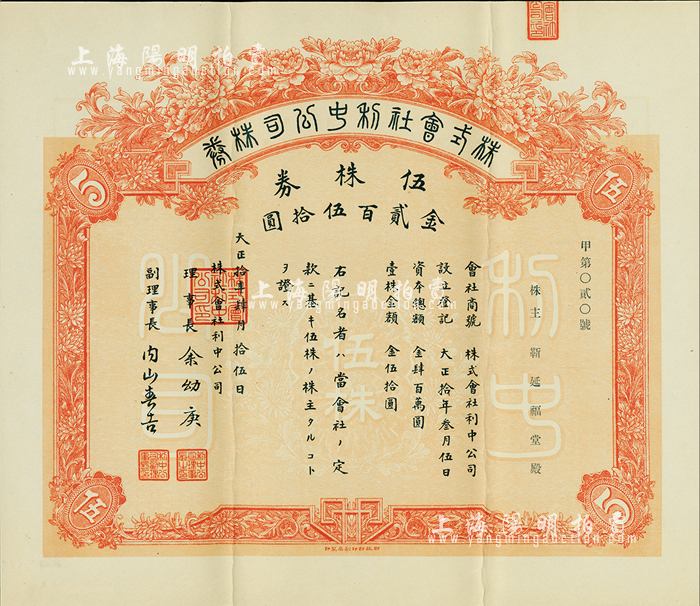 上海陽明拍賣
www.yangmingauction.com
株式會社利中公司株券
伍株券
金貳百伍拾圓
甲第〇貳〇號
株主 靳延福堂殿
會社商號 株式會社利中公司
設立登記 大正拾年叁月伍日
資本總額 金肆百萬圓
壹株金額 金伍拾圓
右記名者ハ當會社ノ定
款ニ基キ伍株ノ株主タルコト
ヲ證ス
大正拾年肆月拾伍日
株式會社利中公司
理事長 余幼庚
副理事長 內山壽吉
伍
伍
伍
伍
利中
公司
伍株
上海陽明拍賣
www.yangmingauction.com
上海陽明拍賣
www.yangmingauction.com